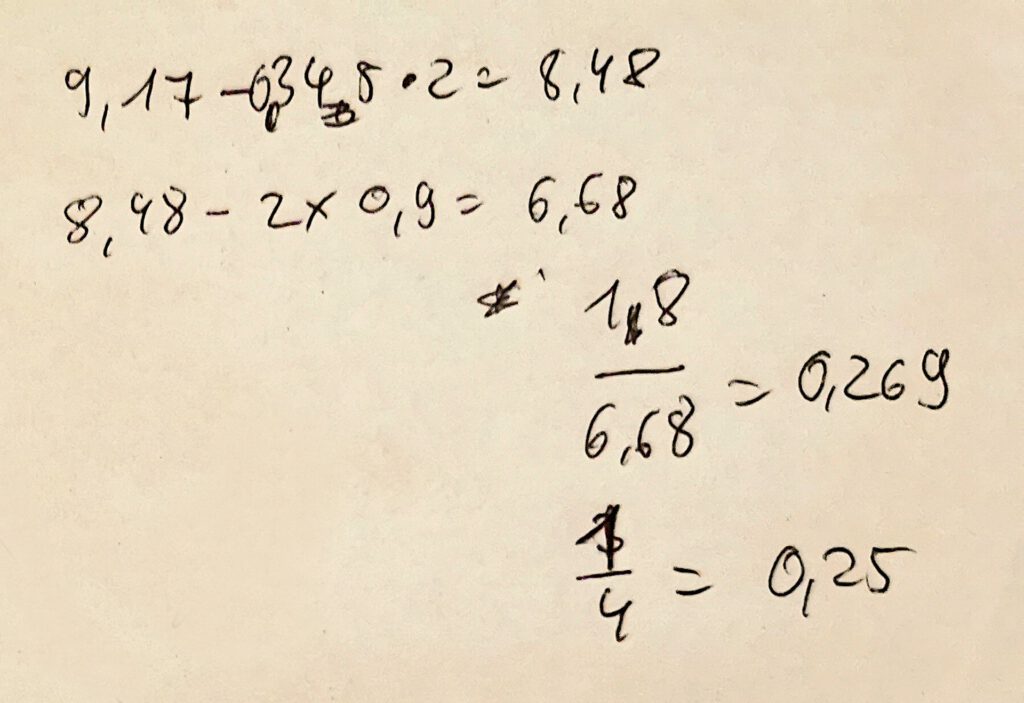 9,17 - 0,345 · 2 = 8,48
8,48 - 2 x 0,9 = 6,68
1,8
6,68 = 0,269
1
4 = 0,25